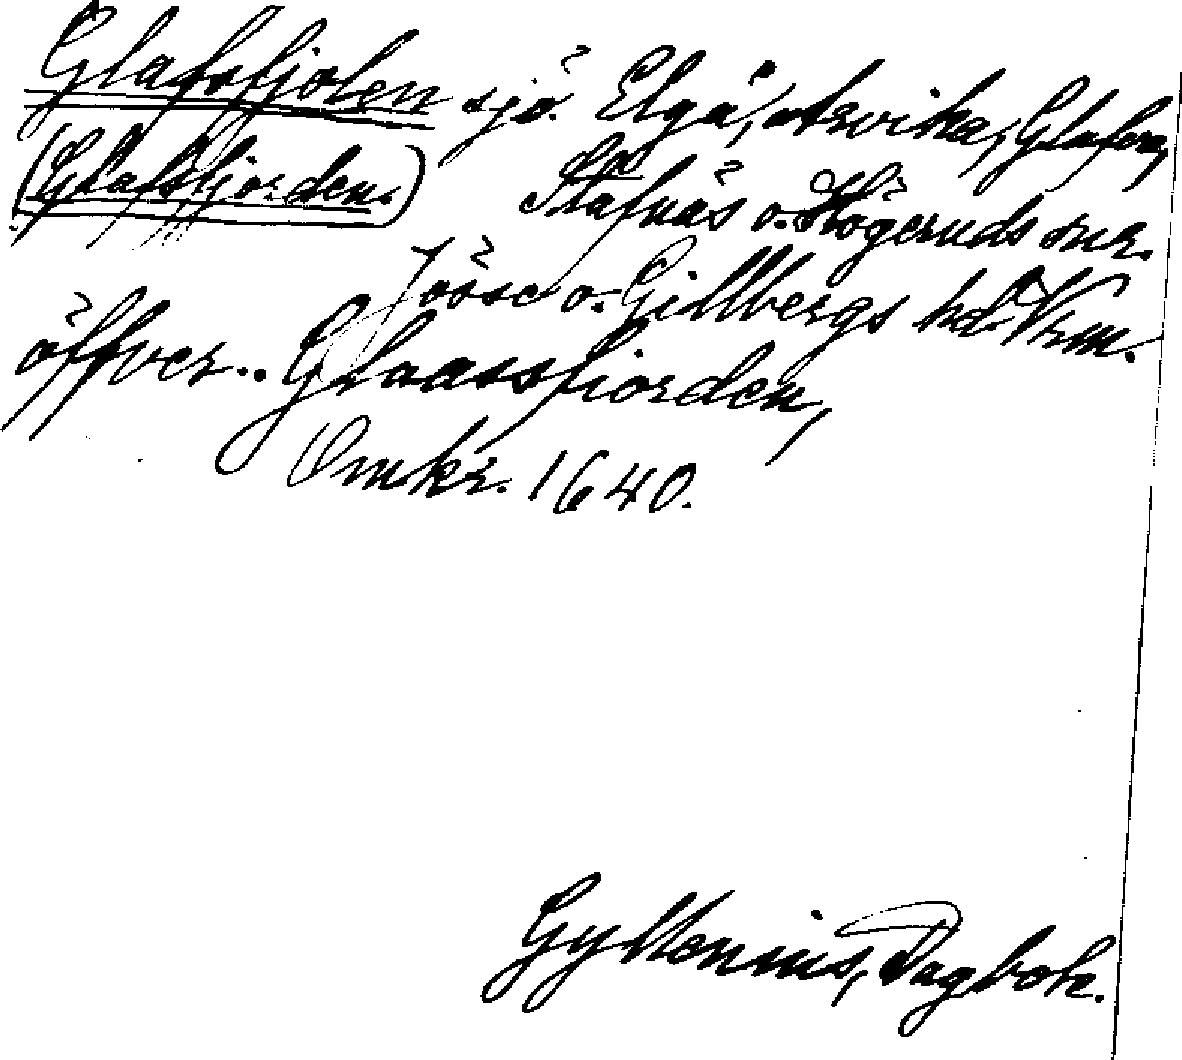 Glafsfjolen sjö. Elgå, Arvika, Glafva,
(Glafsfjorden.) Stafnäs o. Högeruds snr.
Jösse o. Gillbergs hd. Vrm.
öffver.. Glaassfiorden,
Omkr. 1640.
Gyllenius, Dagbok.